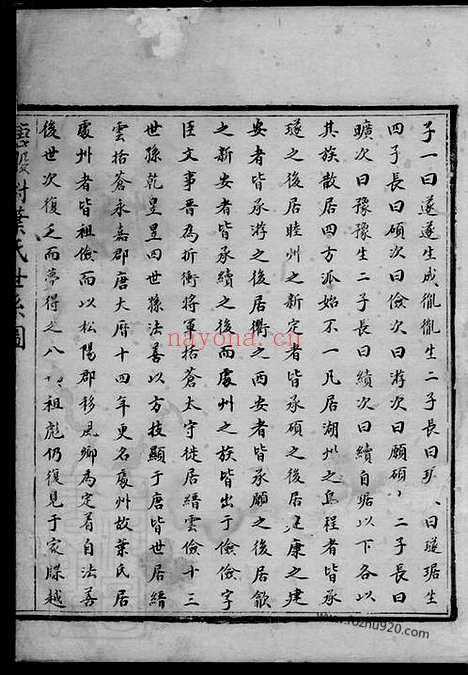 子一曰遂遂生成胤胤生二子長曰㺿曰遂琚生
四子長曰碩次曰儉次曰游次曰願碩二子長曰
曠次曰豫豫生二子長曰續次曰續自琚以下各以
其族散居四方派始不一凡居湖州之烏程者皆承
遂之後居睦州之新定者皆承碩之後居建康之建
安者皆承游之後居衢之西安者皆承願之後居歙
之新安者皆承續之後而處州之族皆出于儉儉字
臣文事晋為折衝將軍括蒼太守徙居縉雲儉十三
世孫乾昱昱四世孫法善以方技顯于唐皆世居縉
雲括蒼永嘉郡唐大曆十四年更名處州故葉氏居
處州者皆祖儉而以松陽郡移風鄉為定着自法善
後世次復乏而夢得之八祖彪仍復見于家牒越
葉氏世系圖
nayona.cn
www.fozhu920.com